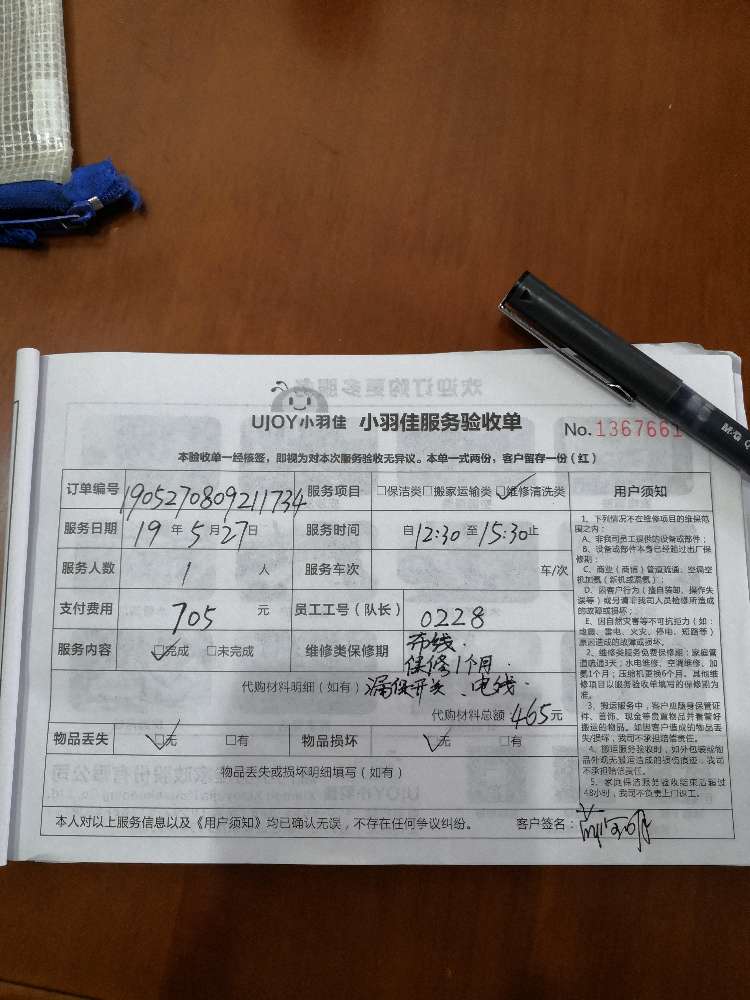 UJOY小羽佳 小羽佳服务验收单 No.1367661
本验收单一经核签，即视为对本次服务验收无异议。本单一式两份，客户留存一份（红）
订单编号 190527080921734 服务项目 □保洁类□搬家运输类□维修清洗类 用户须知
服务日期 19年5月27日 服务时间 自12:30至15:30止
服务人数 1 人 服务车次 车/次
支付费用 705 元 员工工号（队长） 0228
服务内容 □完成 □未完成 维修类保修期 布线. 保修1个月.
代购材料明细（如有）漏保开关、电线.
代购材料总额 465元
物品丢失 □无 □有 物品损坏 □无 □有
物品丢失或损坏明细填写（如有）
本人对以上服务信息以及《用户须知》均已确认无误，不存在任何争议纠纷。 客户签名：
1、下列情况不在维修项目的维保范
围之内：
A、非我司员工提供的设备或部件；
B、设备或部件本身已经超过出厂保
修期；
C、商业（商铺）管道疏通、空调空
机加氟（新机或漏氟）；
D、因客户行为（擅自装卸、操作失
误等）或另请非我司人员检修所造成
的故障或损坏；
E、因自然灾害等不可抗拒力（如：
地震、雷电、火灾、停电、短路等）
原因造成的故障或损坏。
2、维修类服务免费保修期：家庭管
道疏通3天；水电维修、空调维修、加
氟1个月；压缩机更换6个月。其他维
修项目以服务验收单填写的保修期为
准。
3、搬运服务中，客户应随身保管证
件、首饰、现金等贵重物品并看管好
搬运的物品。如因客户造成的物品丢
失损坏，我司不承担赔偿责任。
4、搬运服务验收时，如外包装或物
品外观无搬运造成的损伤痕迹，我司
不承担赔偿责任。
5、家庭保洁服务验收结束后超过
48小时，我司不负责上门返工。